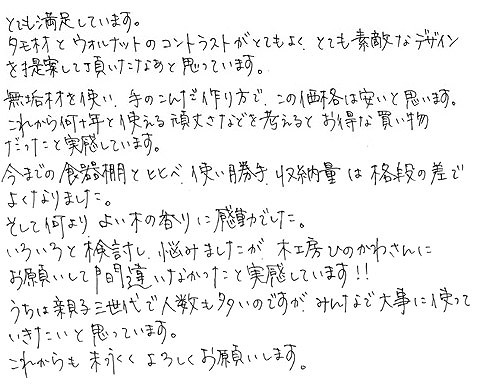 とても満足しています。
タモ材とウォルナットのコントラストがとてもよく、とても素敵なデザイン
を提案して頂いたなあと思っています。
無垢材を使い、手のこんだ作り方で、この価格は安いと思います。
これから何十年と使える頑丈さなどを考えるとお得な買い物
だったと実感しています。
今までの食器棚とヒヒベ、使い勝手、収納量は格段の差で
よくなりました。
そして何より、よい木の香りに感動でした。
いろいろと検討し、悩みましたが、木工房ひのかわさんに
お願いして間違いなかったと実感しています!!
うちは親子三世代で人数も多いのですが、みんなで大事に使って
いきたいと思っています。
これからも末永くよろしくお願いします。